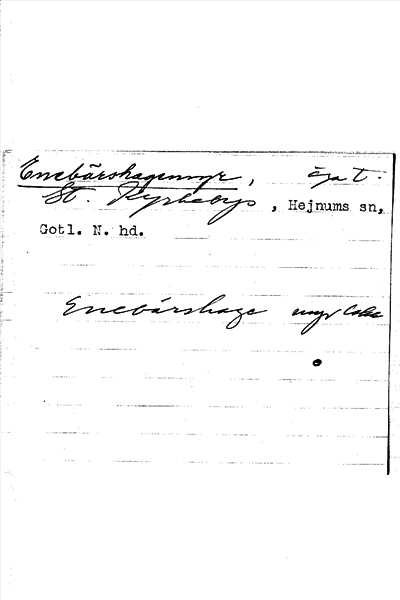 Enebärshagemyr, äga t.
St. Kyrkebys, Hejnums sn,
Gotl. N. hd.
Enebárshage myr